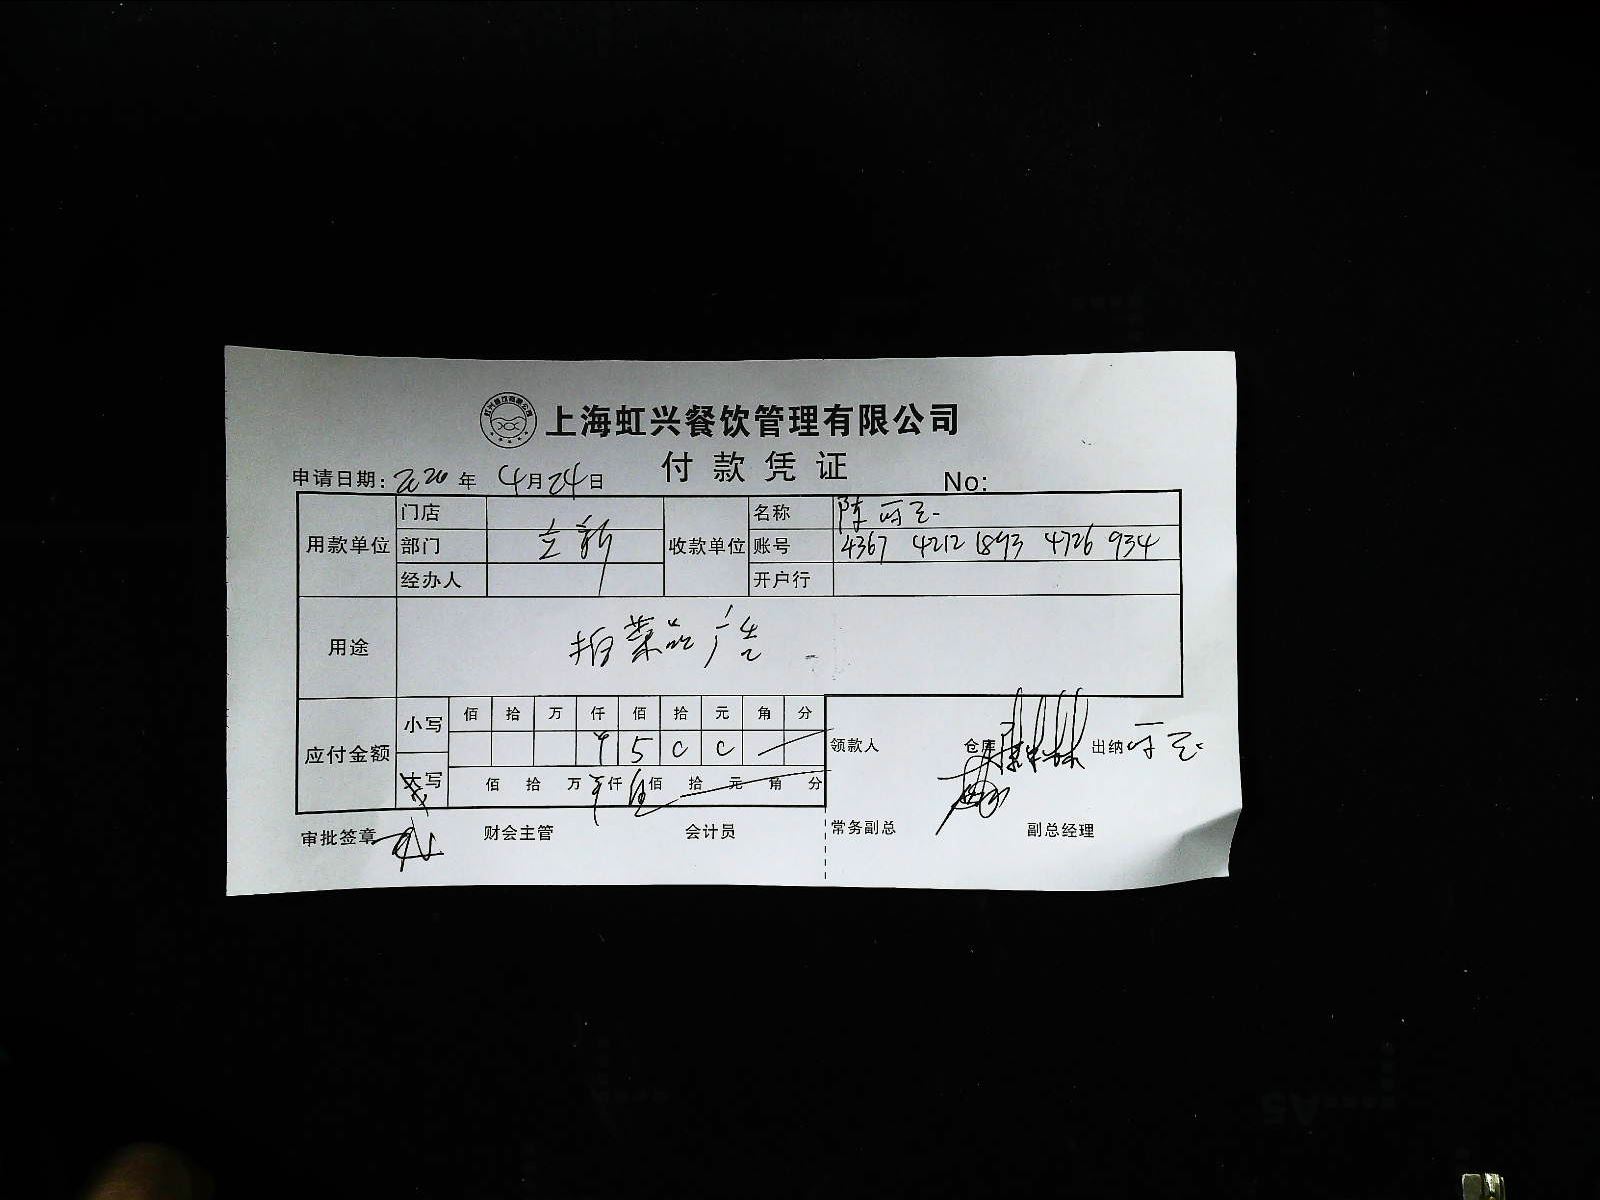 上海虹兴餐饮管理有限公司
付款凭证
申请日期: 2020 年 4月24日 No:
用款单位 门店 收款单位 名称 陈
部门 立新 账号 4367 4212 1893 4726 934
经办人 开户行
用途 拍菜品广告
应付金额 小写 佰 拾 万 仟 佰 拾 元 角 分
5 0 0
大写 佰 拾 万 仟 伍佰 拾 元 角 分
领款人 仓库 出纳
审批签章 财会主管 会计员 常务副总 副总经理